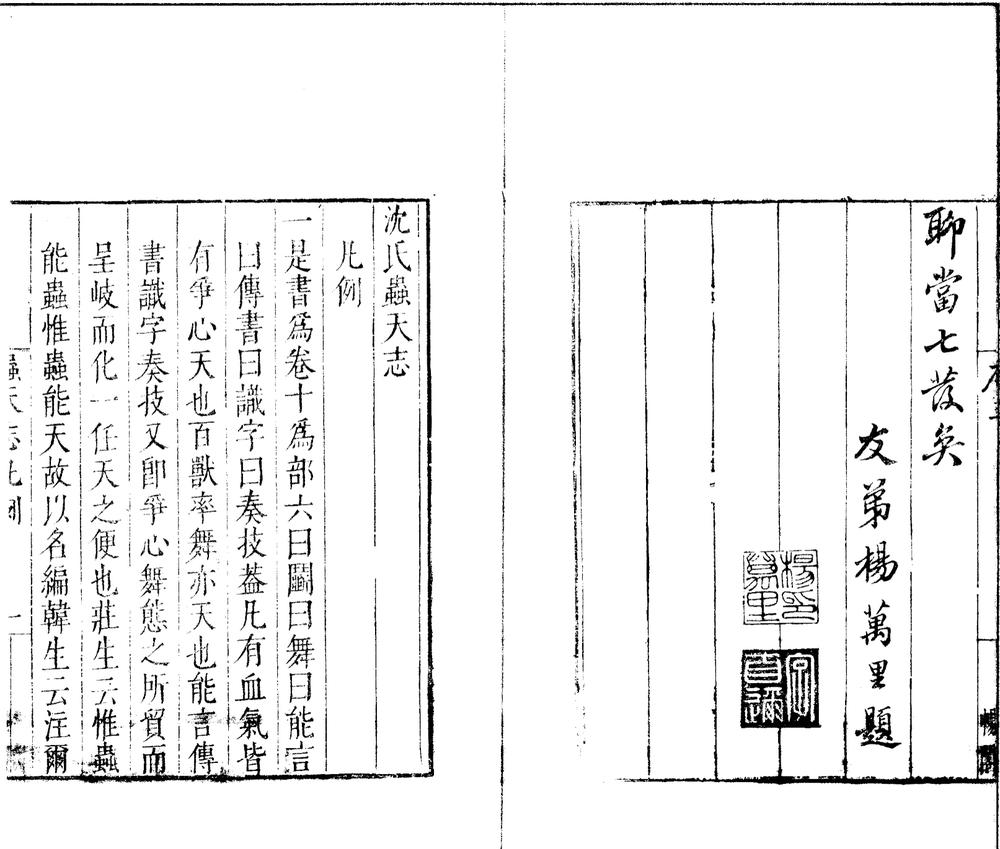 聊當七發矣
友弟楊萬里題
楊萬里印
沈氏蟲天志
凡例
一是書爲卷十爲部六曰鬭曰舞曰能言
曰傳書曰識字曰奏技葢凡有血氣皆
有爭心天也百獸率舞亦天也能言傳
書識字奏技又卽爭心舞態之所貿而
呈岐而化一任天之便也莊生云惟蟲
能蟲惟蟲能天故以名編韓生云注爾
蟲天志凡例
一